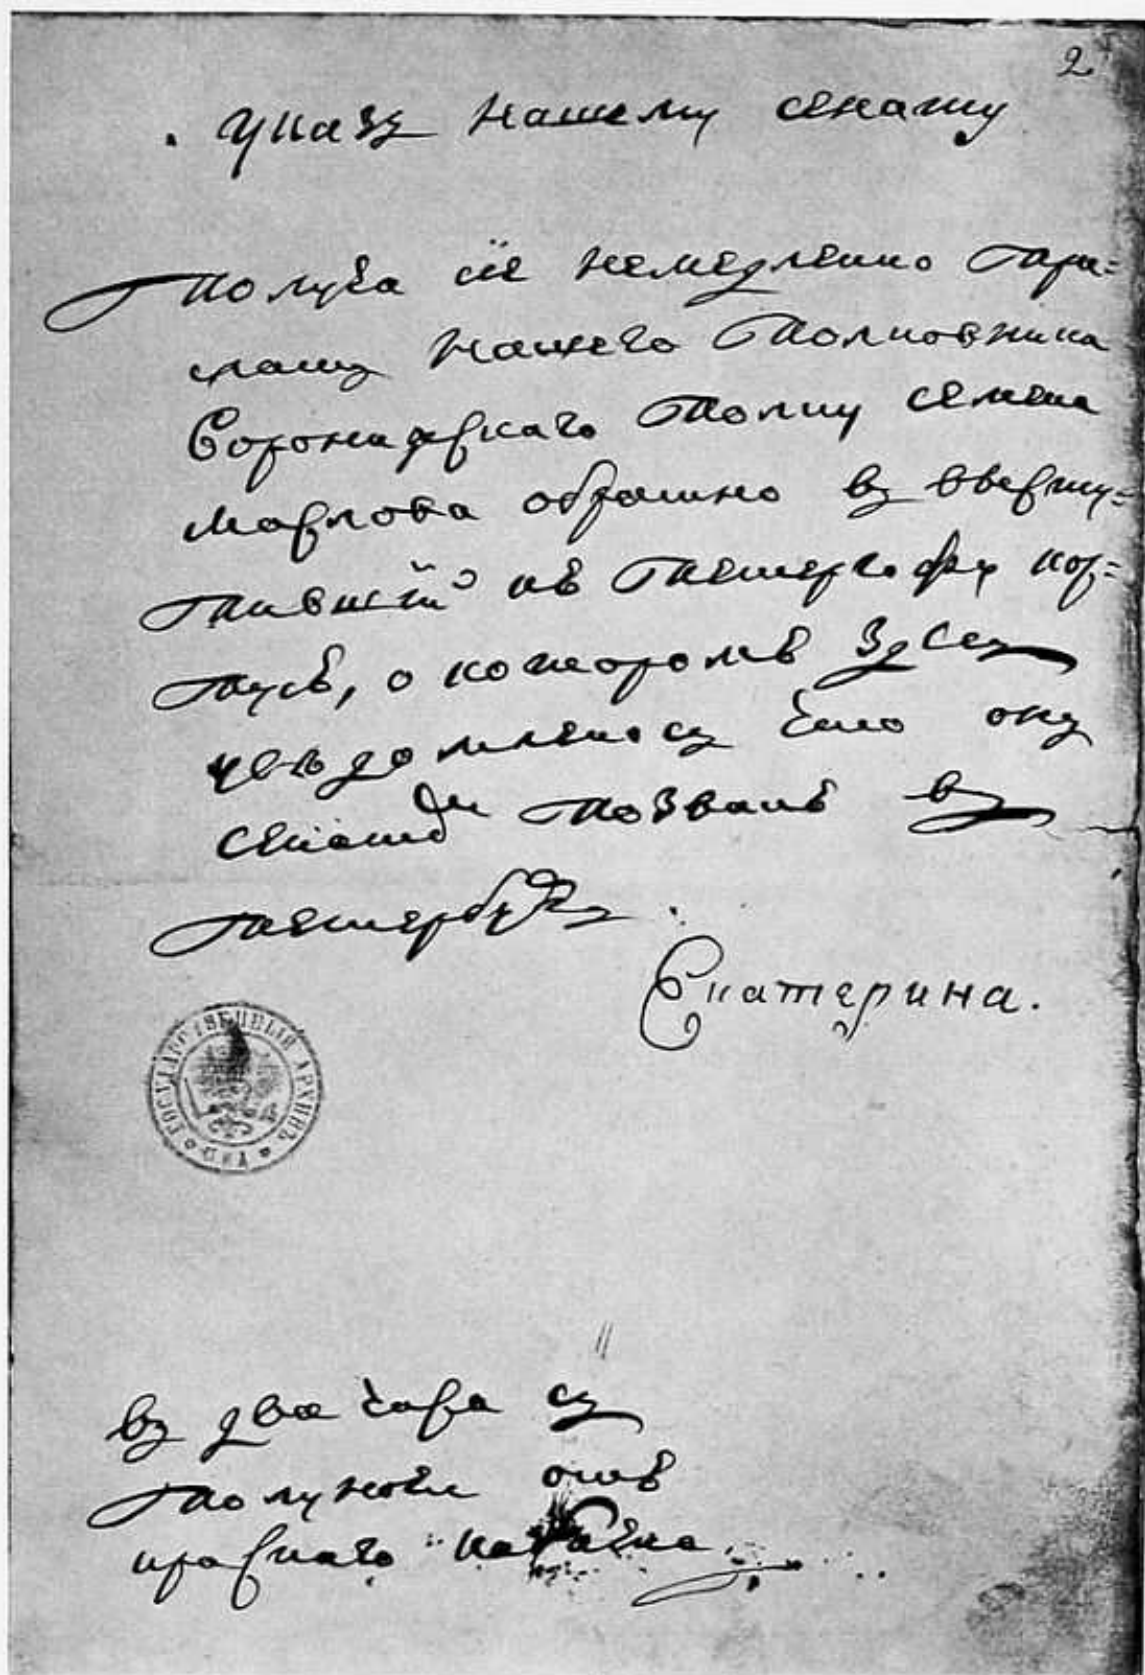 2
указъ нашему сенату
Получа сіе немедленно При=
слать нашего Полковника
Воронежскаго Полку семена
маслова обратно въ вверсту=
пившій къ Петергофу кор=
пусъ, о которомъ здесь
уведомленось что онъ
сенатомъ позванъ въ
Петербургъ.
Екатерина.
ГОСУДАРСТВЕННЫЙ АРХИВЪ
въ два часа съ
Полуночи отъ
краснаго кабачка